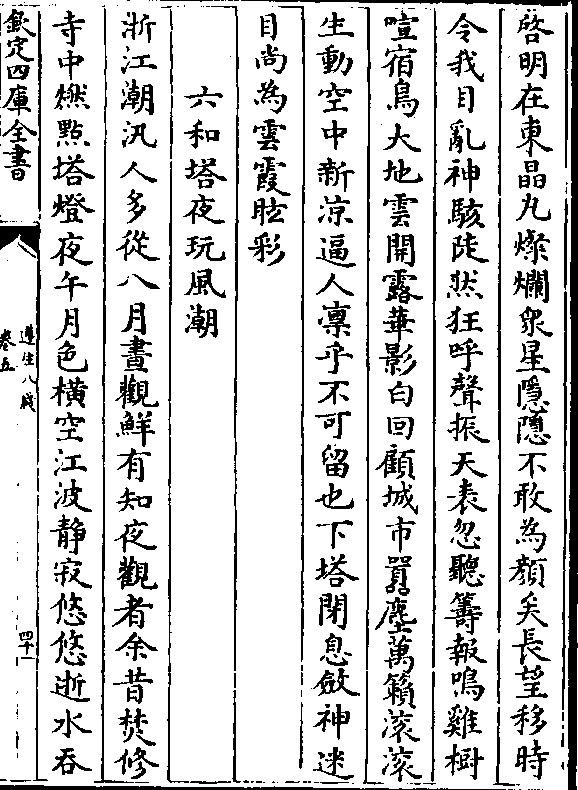 啓明在東晶丸燦爛衆星隱隱不敢為顔矣長望移時
令我目亂神駭陡然狂呼聲振天表忽聽籌報鳴雞樹
喧宿鳥大地雲開露華影白回顧城市嚣塵萬籟滾滾
生動空中新涼逼人凜乎不可留也下塔閉息斂神迷
目尚為雲霞眩彩
六和塔夜玩風潮
浙江潮汛人多從八月晝觀鮮有知夜觀者余昔焚修
寺中燃點塔燈夜午月色横空江波静寂悠悠逝水吞
欽定四庫全書
遵生八牋
卷五
四十一